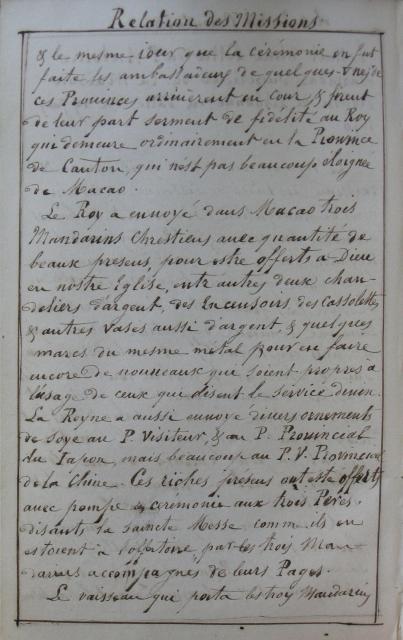 Relation des Missions
& le mesme iour que la cérémonie en fut
faite les ambassadeurs de quelques-vnes de
ces Provinces arriuèrent en cour, & firent
de leur part serment de fidélité au Roy
qui demeure ordinairement en la Province
de Canton, qui n'est pas beaucoup éloignée
de Macao.
Le Roy a enuoyé dans Macao trois
Mandarins Chrestiens auec quantité de
beaux presens, pour estre offerts à Dieu
en nostre Eglise, entr'autres deux chan-
deliers d'argent, des Encensoirs des Cassolettes
& autres Vases aussi d'argent, & quelques
marcs du mesme métal pour en faire
encore de nouueaux qui soient propres à
l'usage de ceux qui disent le service diuin.
La Royne a aussi enuoyé diuers ornements
de soye au P. Visiteur, & au P. Provincial
du Iapon, mais beaucoup au P. V. Provincial
de la Chine. Ces riches présens ont esté offerts
auec pompe & cérémonie aux trois Pères
disants la saincte Messe comm'ils en
estoient à l'offertoire, par les trois Man-
darins accompagnés de leurs Pages.
Le vaisseau qui porta les trois Mandarins